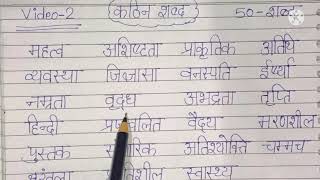 Video-2 कठिन शब्द 50-शब्द
महत्व अशिष्टता प्राकृतिक अतिथि
व्यवस्था जिज्ञासा वनस्पति ईर्ष्या
नम्रता वृद्ध अभद्रता तृप्ति
हिन्दी वैद्य मरणशील
पुस्तक अतिश्योक्ति चम्मच
स्वास्थ्य